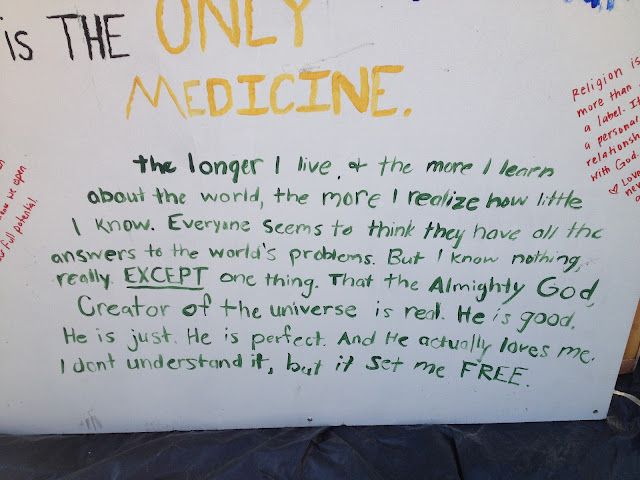 is THE ONLY
MEDICINE.
the longer I live, & the more I learn
about the world, the more I realize how little
I know. Everyone seems to think they have all the
answers to the world's problems. But I know nothing,
really. EXCEPT one thing. That the Almighty God,
Creator of the universe is real. He is good.
He is just. He is perfect. And He actually loves me.
I dont understand it, but it set me FREE.
Religion is
more than
a label. It
a personal
relationship
with God.
♡ Love
we open
full potential